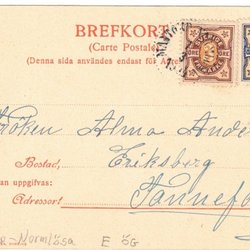 BREFKORT
(Carte Postale)
(Denna sida användes endast för Adre
Fröken Alma Andé
Bostad, Eriksberg
an uppgifvas:
Adressort Tannefo
Normlösa E ÖG